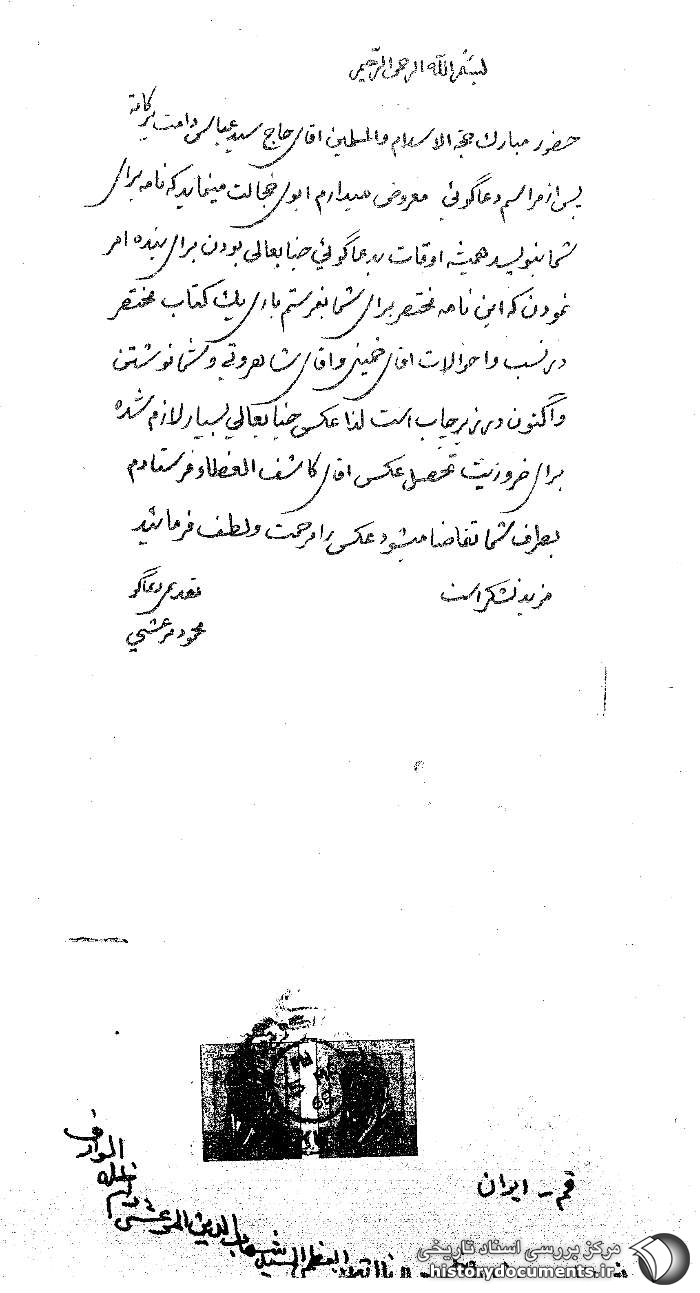 بسم الله الرحمن الرحیم
حضور مبارک حجة الاسلام والمسلمین اقای حاج سید عباس دامت برکاته
پس از مراسم دعاگوئی معروض میدارم ابوی خجالت مینماید که نامه برای
شما بنویسد همیشه اوقات بدعاگوئی جنابعالی بودن برای بنده امر
نمودن که این نامه مختصر برای شما بفرستم باری یک کتاب مختصر
در نسب و احوالات اقای خمینی و اقای شاهرودی و شما نوشتن
واکنون در زیر چاپ است لذا عکس جنابعالی بسیار لازم شده
برای ضروریت تحصل عکس اقای کاشف الغطاء فرستادم
بطرف شما تقاضا میشود عکس را مرحمت ولطف فرمائید
مزید تشکر است
دعاگو
محمود مرعشی
قم - ایران
العظمی السید شهاب الدین المرعشی دام ظله الوارف
مرکز بررسی اسناد تاریخی
historydocuments.ir